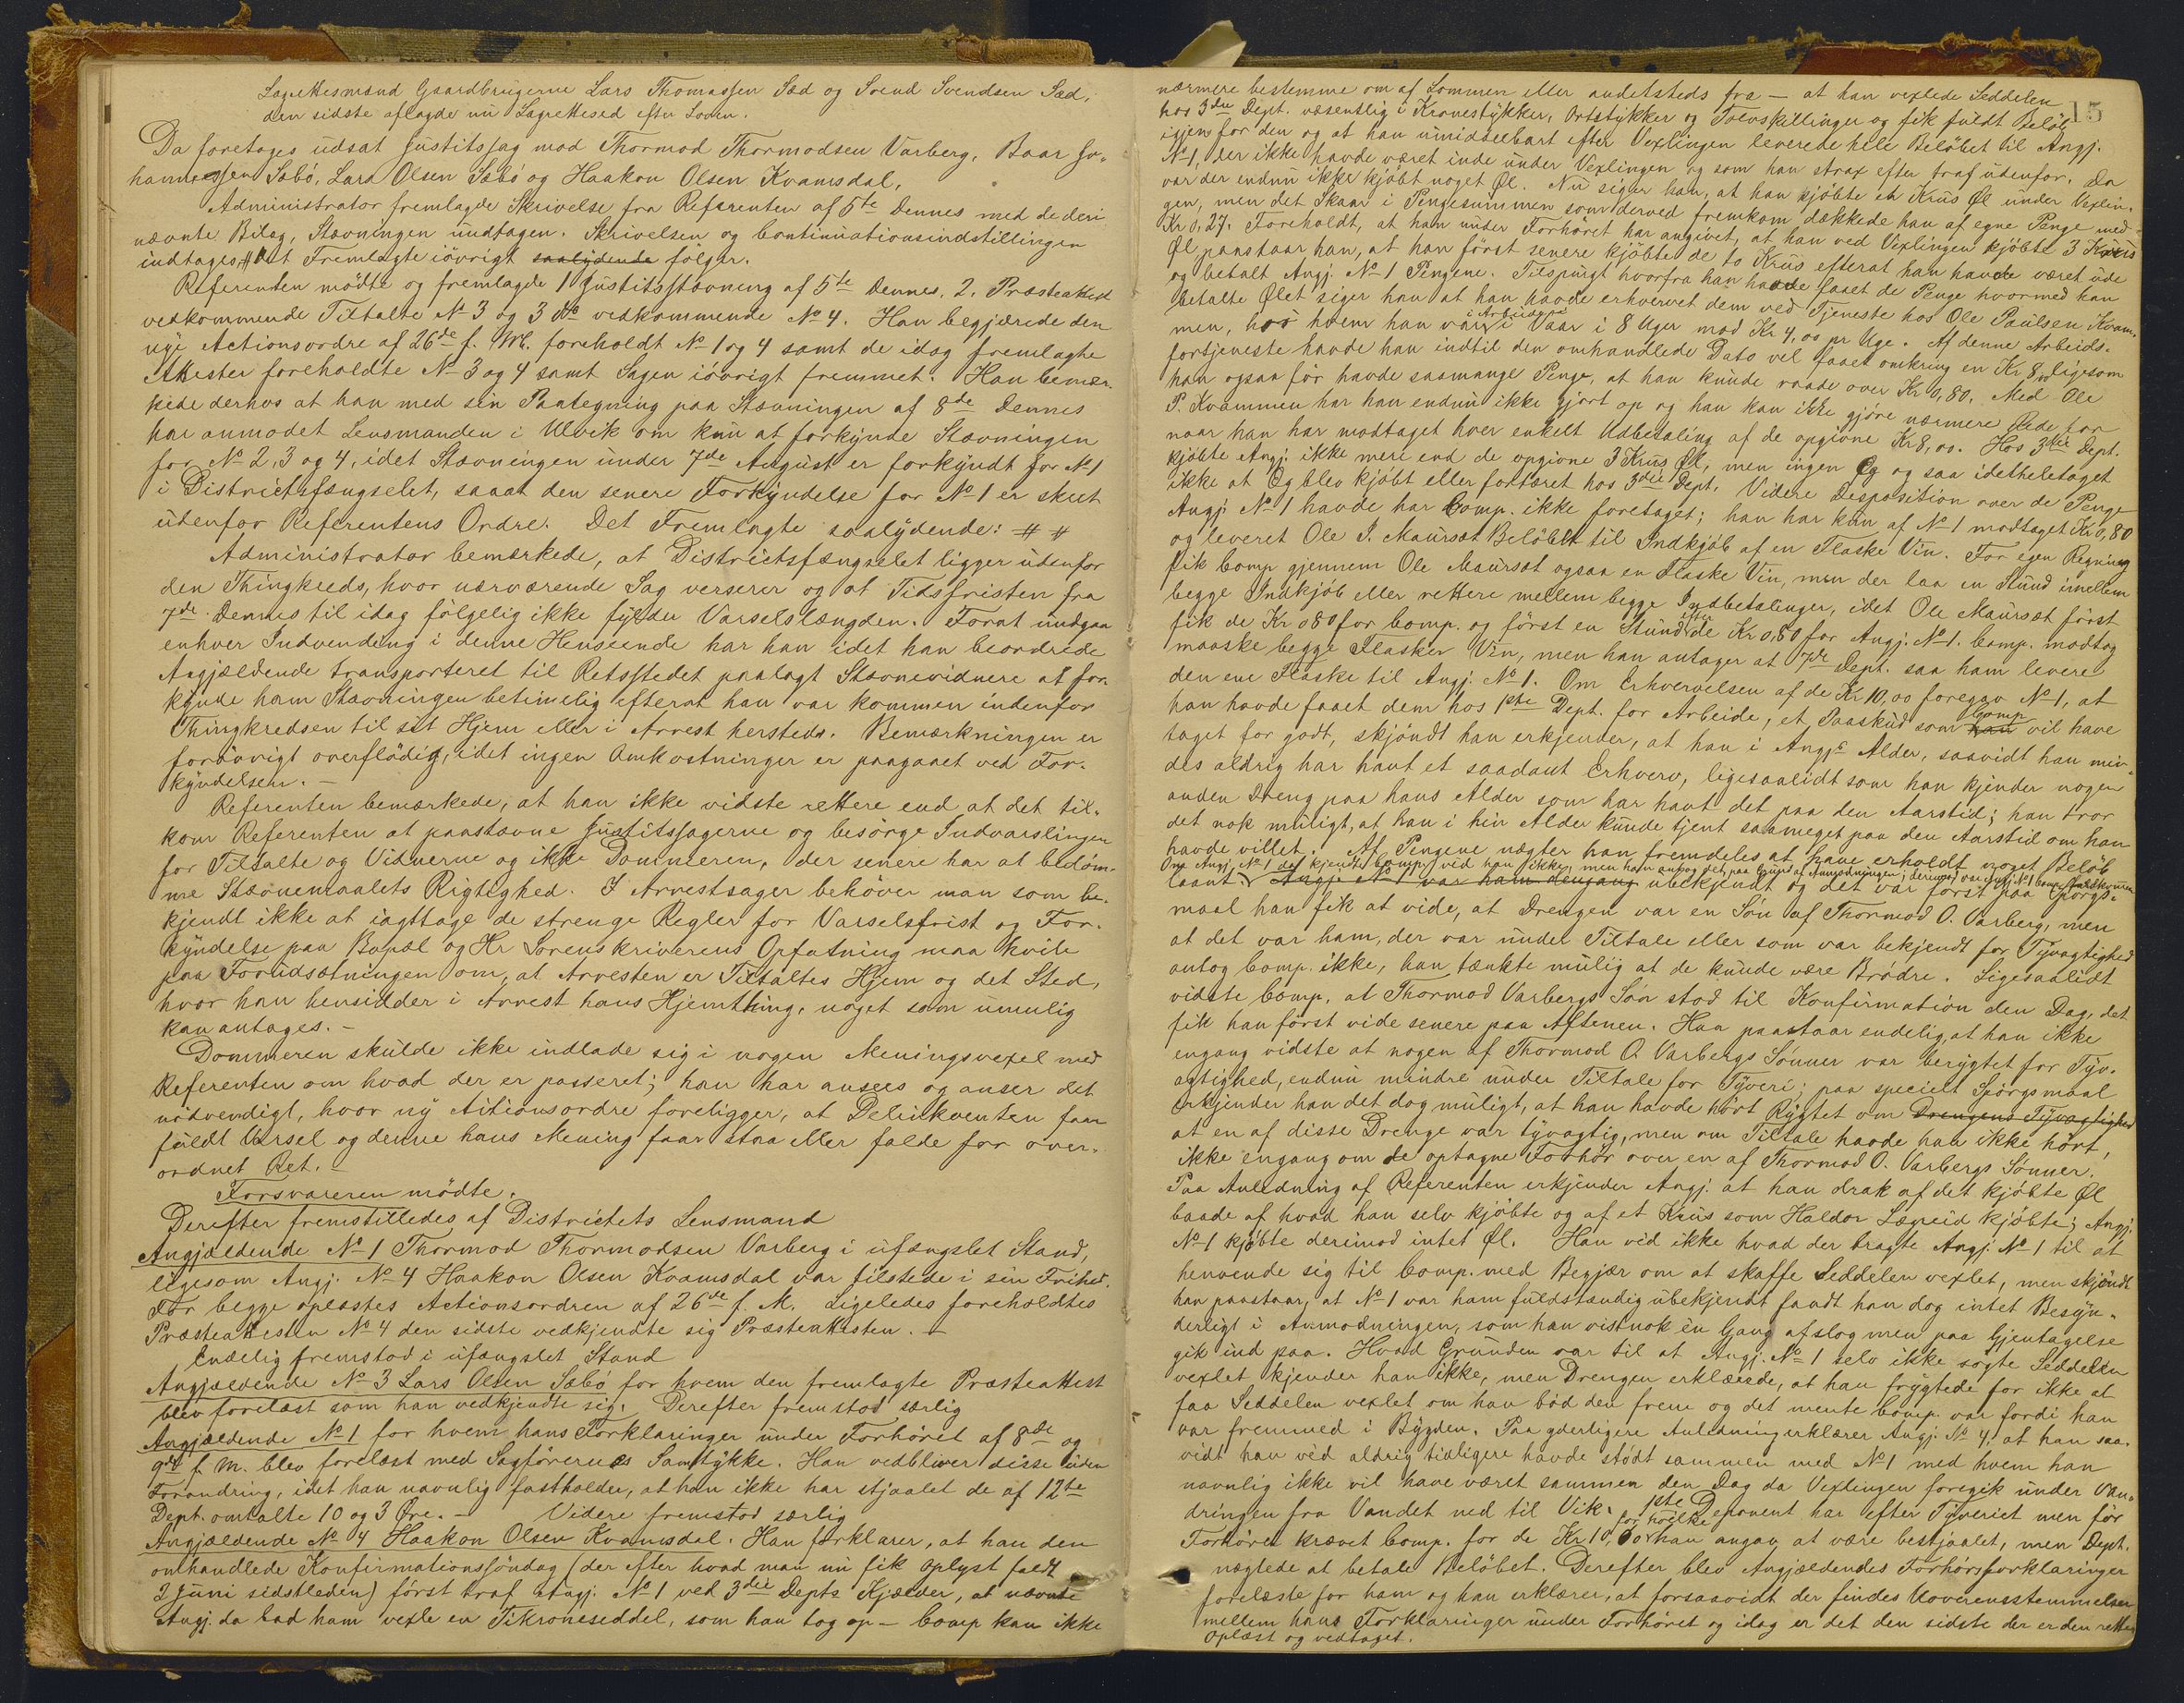 Lagrettesmænd Gaardbrugerne Lars Thomassen Sæd og Svend Svendsen Sæd,
den sidste aflagde nu Lagrettesed efter Loven.
Da foretoges udsat Justitssag mod Thormod Thormodsen Varberg, Baar Jo-
hannessen Sæbö, Lars Olsen Sæbö og Haakon Olsen Kvamsdal,
Administrator fremlagde Skrivelse fra Referenten af 5te Dennes med de deri
nævnte Bilag, Stævningen undtagen. Skrivelsen og Continuationsindstillingen
indtages, det Fremlagte iövrigt saalydende fölger.
Referenten mödte og fremlagde 1 Justitsstævning af 5te Dennes, 2. Præsteattest
vedkommende Tiltalte No 3 og 3 do vedkommende No 4. Han begjærede den
nye Actionsordre af 26de f. M. foreholdt No 1 og 4 samt de idag fremlagte
Attester foreholdte No 3 og 4 samt Sagen iövrigt fremmet. Han bemær-
kede derhos at han med sin Paategning paa Stævningen af 8de Dennes
har anmodet Lensmanden i Ulvik om kun at forkynde Stævningen
for No 2, 3 og 4, idet Stævningen under 7de August er forkyndt for No 1
i Districtsfængselet, saaat den senere Forkyndelse for No 1 er skeet
udenfor Referentens Ordre. Det Fremlagte saalydende: # #
Administrator bemærkede, at Districtsfængselet ligger udenfor
den Thingkreds, hvor nærværende Sag verserer og at Tidsfristen fra
7de Dennes til idag fölgelig ikke fylder Varselslængden. Forat undgaa
enhver Indvending i denne Henseende har han idet han beordrede
Angjældende transporteret til Retsstedet paalagt Stævnevidnere at for-
kynde ham Stævningen betimelig efterat han var kommen indenfor
Thingkredsen til sit Hjem eller i Arrest hersteds. Bemærkningen er
forövrigt overflödig, idet ingen Omkostninger er paagaaet ved For-
kyndelsen. -
Referenten bemærkede, at han ikke vidste rettere end at det til-
kom Referenten at paastævne Justitssagerne og besörge Indvarslingen
for Tiltalte og Vidnerne og ikke Dommeren, der senere har at bedöm-
me Stævnemaalets Rigtighed. I Arrestsager behöver man som be-
kjendt ikke at iagttage de strenge Regler for Varselsfrist og For-
kyndelse paa Bopæl og Hr Sorenskriverens Opfatning maa hvile
paa Forudsætningen om, at Arresten er Tiltaltes Hjem og det Sted,
hvor han hensidder i Arrest hans Hjemthing, noget som umulig
kan antages. -
Dommeren skulde ikke indlade sig i nogen Meningsvexel med
Referenten om hvad der er passeret; han har ansees og anser det
nödvendigt, hvor ny Aitionsordre foreligger, at Delinkventen faar
fuldt Varsel og denne hans Mening faar staa eller falde for over-
ordnet Ret. -
Forsvareren mödte.
Derefter fremstilledes af Districtets Lensmand
Angjældende No 1 Thormod Thormodsen Varberg i ufængslet Stand,
ligesom Angj. No 4 Haakon Olsen Kvamsdal var tilstede i sin Frihed.
For begge oplæstes Actionsordren af 26de f. M. Ligeledes foreholdtes
Præsteattesten No 4 den sidste vedkjendte sig Præsteattesten. -
Endelig fremstod i ufængslet Stand
Angjældende No 3 Lars Olsen Sæbö for hvem den fremlagte Præsteattest
blev forelæst som han vedkjendte sig. Derefter fremstod særlig
Angjældende No 1 for hvem hans Forklaringer under Forhöret af 8de og
9de f. M. blev forelæst med Sagförernes Samtykke. Han vedbliver disse uden
Forandring, idet han navnlig fastholder, at han ikke har stjaalet de af 12te
Dept. omtalte 10 og 3 Öre. - Videre fremstod særlig
Angjældende No 4 Haakon Olsen Kvamsdal. Han forklarer, at han den
omhandlede Konfirmationssöndag (der efter hvad man nu fik oplyst faldt
2 Juni sidstleden) först traf Angj. No 1 ved 3die Depts Kjælder, at nævnte
Angj. da bad ham vexle en Tikroneseddel, som han tog op - Comp kan ikke
15
nærmere bestemme om af Lommen eller andetsteds fra - at han vexlede Seddelen
hos 3die Dept. væsentlig i Kronestykker, Ortstykker og Tolvskillinger og fik fuldt Belöb
igjen for den og at han umiddelbart efter Vexlingen leverede hele Belöbet til Angj.
No 1, der ikke havde været inde under Vexlingen og som han strax efter traf udenfor. Da
var der endnu ikke kjöbt noget Öl. Nu siger han, at han kjöbte et Krus Öl under Vexlin-
gen, men det Skaar i Pengesummen som derved fremkom dækkede han af egne Penge med
Kr 0,27. Foreholdt, at han under Forhöret har angivet, at han ved Vexlingen kjöbte 3 Krus
Öl paastaar han, at han först senere kjöbte de to Krus efterat han havde været ude
og betalt Angj. No 1 Pengene. Tilspurgt hvorfra han havde faaet de Penge hvormed han
betalte Ölet siger han at han havde erhvervet dem ved Tjeneste hos Ole Paulsen Kvam-
men, hos hvem han var i Arbeide i Vaar i 8 Uger mod Kr 4,00 pr Uge. Af denne Arbeids-
fortjeneste havde han indtil den omhandlede Dato vel faaet omkring en Kr 8,00 ligesom
han ogsaa för havde saamange Penge, at han kunde raade over Kr 0,80. Med Ole
P. Kvammen har han endnu ikke gjort op og han kan ikke gjöre nærmere Rede for
naar han har modtaget hver enkelt Udbetaling af de opgivne Kr 8,00. Hos 3die Dept.
kjöbte Angj. ikke mere end de opgivne 3 Krus Öl, men ingen Æg og saa idetheletaget
ikke at Æg blev kjöbt eller fortæret hos 3die Dept. Videre Desposition over de Penge
Angj. No 1 havde har Comp. ikke foretaget; han har kun af No 1 modtaget Kr 0,80
og leveret Ole J. Maursæt Belöbet til Indkjöb af en Flaske Vin. For egen Regning
fik Comp gjennem Ole Maursæt ogsaa en Flaske Vin, men der laa en Stund imellem
begge Indkjöb eller rettere mellem begge Indbetalinger, idet Ole Maursæt först
fik de Kr 0,80 for Comp. og först en Stund efter de Kr 0,80 for Angj. No 1. Comp. modtog
maaske begge Flasker Vin, men han antager at 7de Dept. saa ham levere
den ene Flaske til Angj. No 1. Om Erhvervelsen af de Kr 10,00 foregav No 1, at
han havde faaet dem hos 1ste Dept. for Arbeide, et Paaskud som han Comp vil have
taget for godt, skjöndt han erkjender, at han i Angjs Alder, saavidt han min-
des aldrig har havt et saadant Erhverv, ligesaalidt som han kjender nogen
anden Dreng paa hans Alder som har havt det paa den Aarstid; han tror
det nok muligt, at han i hin Alder kunde tjent saameget paa den Aarstid om han
havde villet. Af Pengene nægter han fremdeles at have erholdt noget Belöb
laant. Angj. No 1 var ham dengang ubekjendt og det var först paa Spörgs-
maal han fik at vide, at Drengen var en Sön af Thormod O. Varberg, men
at det var ham, der var under Tiltale eller som var bekjendt for Tyvagtighed
antog Comp. ikke, han tænkte mulig at de kunde være Brödre. Ligesaalidt
vidste Comp. at Thormod Varbergs Sön stod til Konfirmation den Dag, det
fik han först vide senere paa Aftenen. Han paastaar endelig, at han ikke
engang vidste at nogen af Thormod O Varbergs Sönner var berygtet for Tyv-
agtighed, endnu mindre under Tiltale for Tyveri; paa specielt Spörgsmaal
erkjender han det dog muligt, at han havde hört Rygtet om Drengens Tyvagtighed
at en af disse Drenge var tyvagtig, men om Tiltale havde han ikke hört,
ikke engang om de optagne Forhör over en af Thormod O. Varbergs Sönner.
Paa Anledning af Referenten erkjender Angj. at han drak af det kjöbte Öl
baade af hvad han selv kjöbte og af et Krus som Haldor Lægreid kjöbte; Angj.
No 1 kjöbte derimod intet Öl. Han vid ikke hvad der bragte Angj. No 1 til at
henvende sig til Comp. med Begjær om at skaffe Seddelen vexlet, men skjöndt
han paastaar, at No 1 var ham fuldstændig ubekjendt fandt han dog intet Besyn-
derligt i Anmodningen, som han vistnok én Gang afslog men paa Gjentagelse
gik ind paa. Hvad Grunden var til at Angj. No 1 selv ikke sögte Seddelen
vexlet kjender han ikke, men Drengen erklærede, at han frygtede for ikke at
faa Seddelen vexlet om han böd den frem og det mente Comp. var fordi han
var fremmed i Bygden. Paa yderligere Anledning erklærer Angj. No 4, at han saa-
vidt han véd aldrig tidligere havde stödt sammen med No 1 med hvem han
navnlig ikke vil have været sammen den Dag da Vexlingen foregik under Van-
dringen fra Vandet ned til Vik. 1ste Deponent har efter Tyveriet men för
Forhöret krævet Comp. for de Kr 10,00 for hvilke han angav at være bestjaalet, men Dept.
nægtede at betale Belöbet. Derefter blev Angjældendes Forhörsforklaringer
forelæste for ham og han erklærer, at forsaavidt der findes Uoverensstemmelser
mellem hans Forklaringer under Forhöret og idag er det den sidste der er den rette
Oplæst og vedtaget.